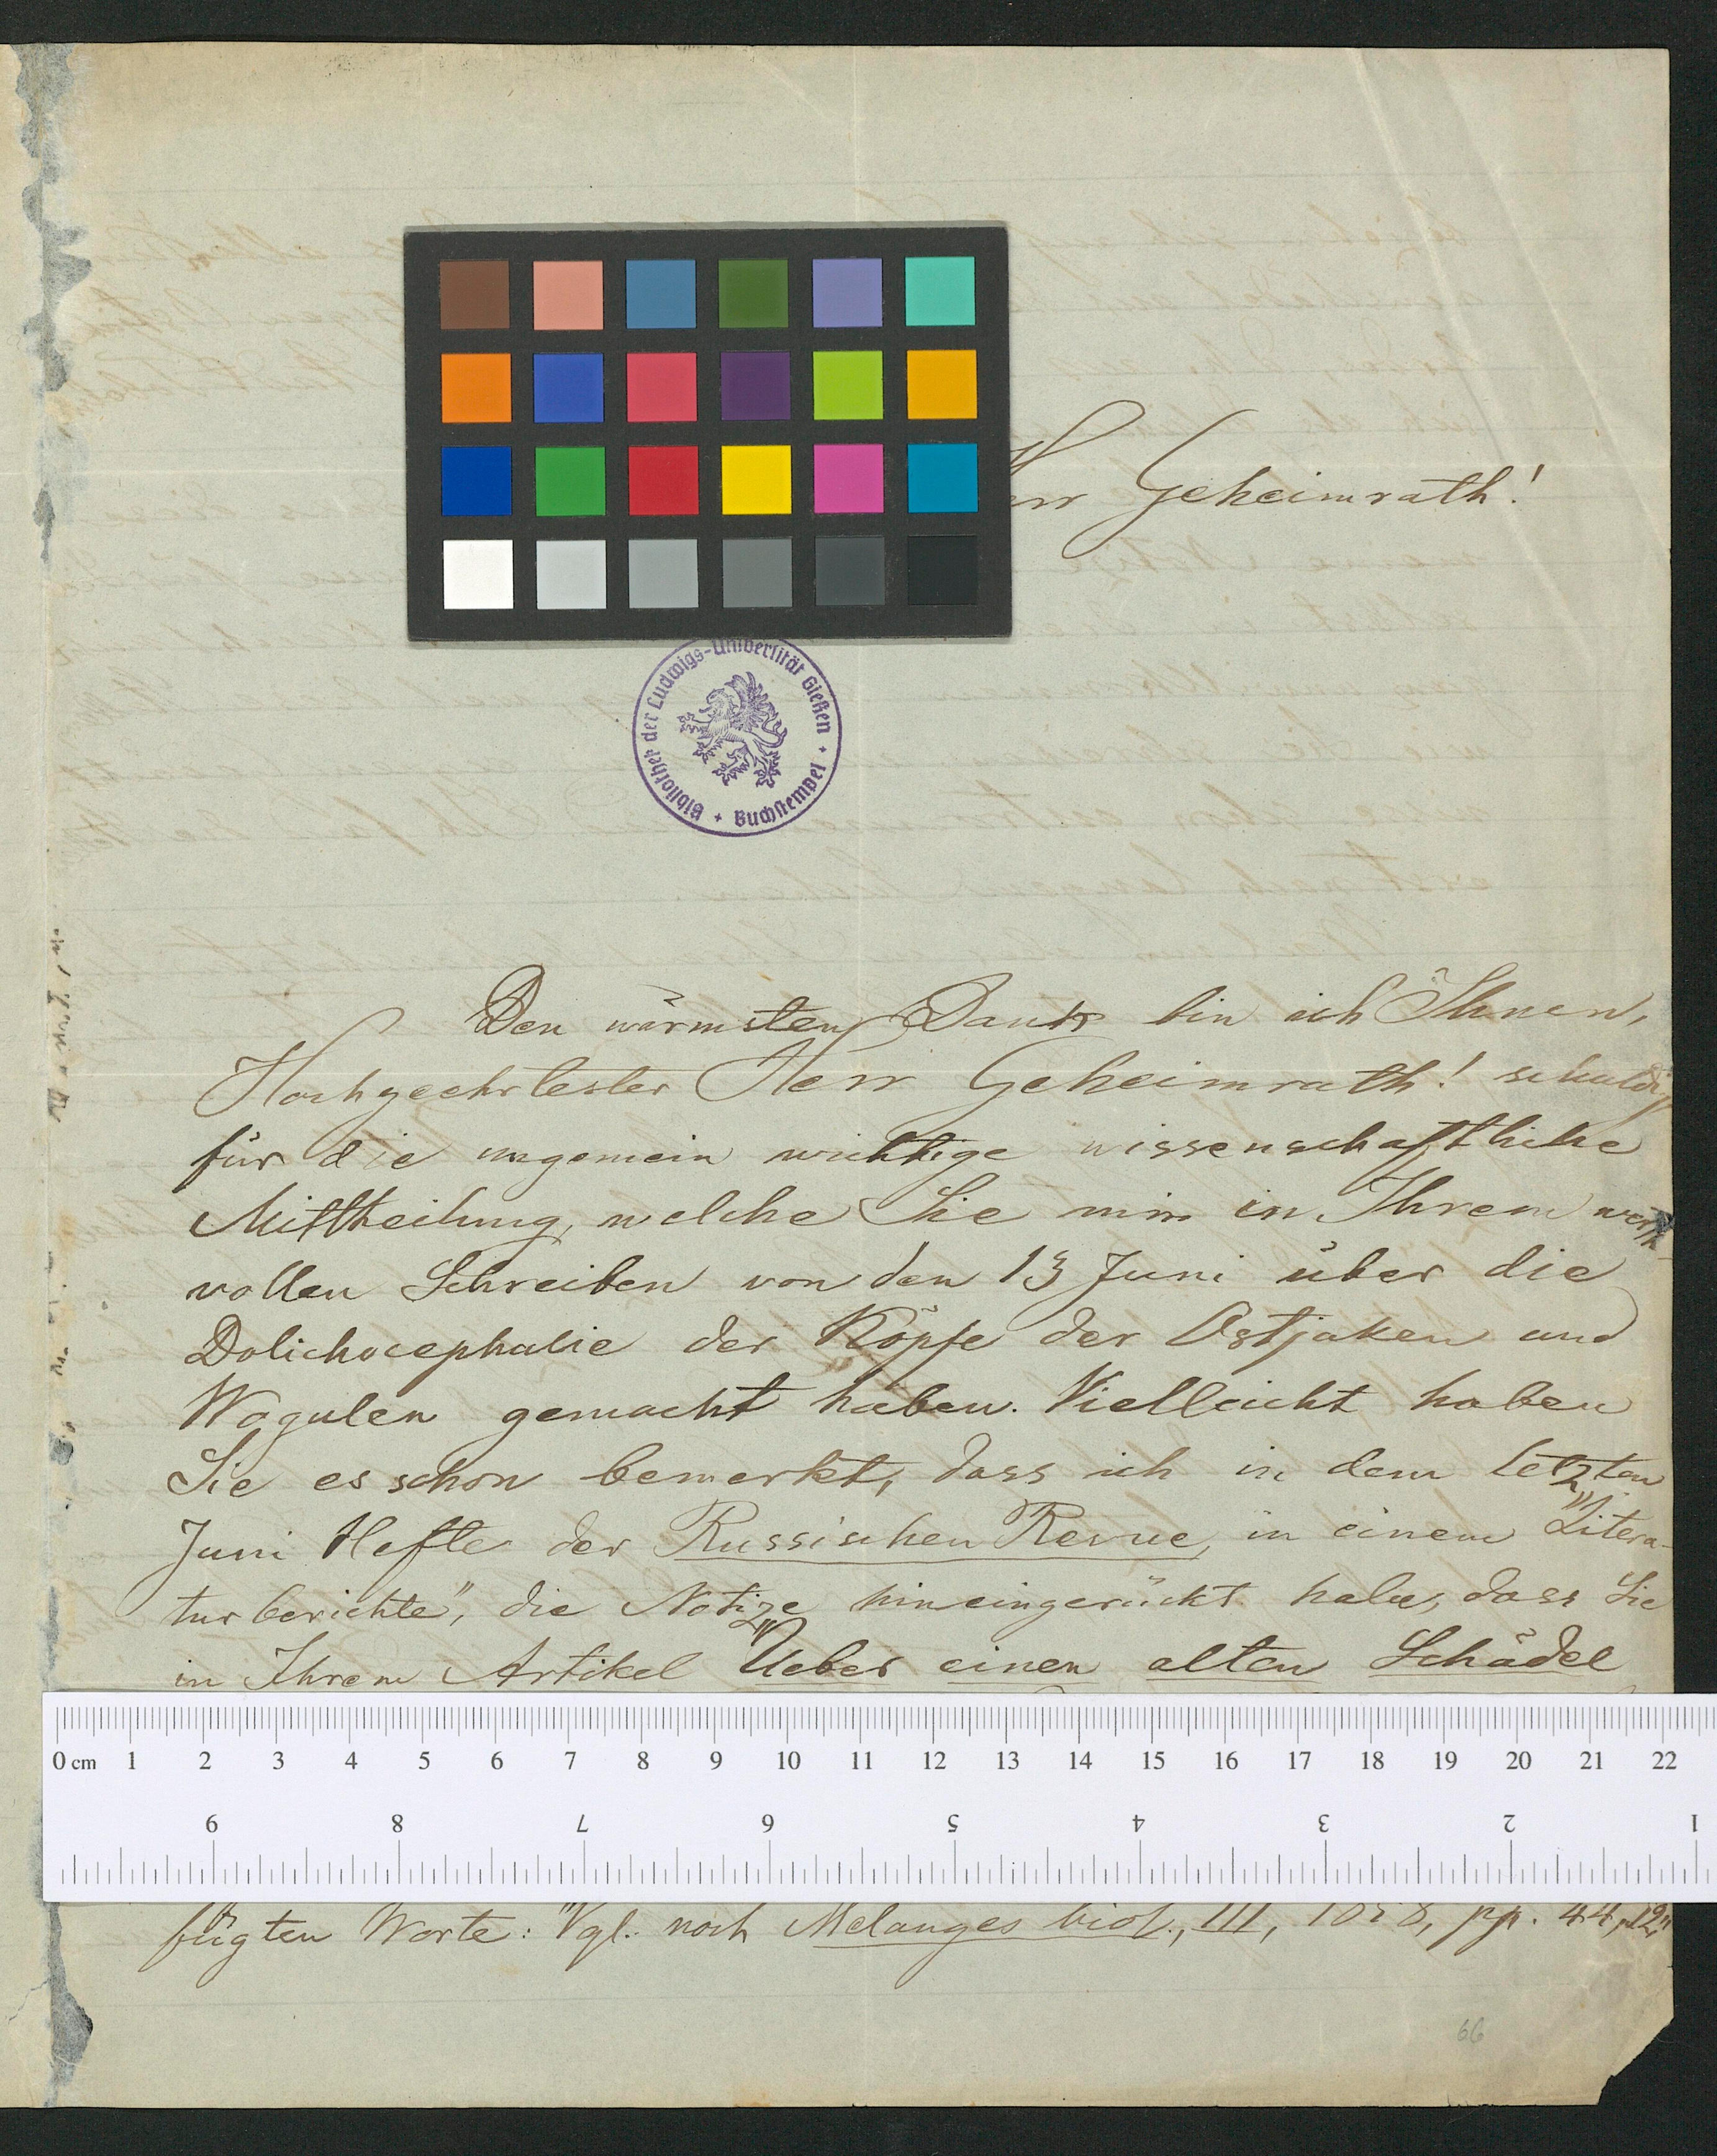 Geheimrath!
Bibliothek der Ludwigs-Universität Gießen + Buchstempel +
Den wärmsten Dank bin ich Ihnen,
Hochgeehrtester Herr Geheimrath! schuldig
für die ungemein wichtige wissenschaftliche
Mittheilung, welche Sie mir in Ihrem werth-
vollen Schreiben von den 13 Juni über die
Dolichocephalie der Köpfe der Ostjaken und
Wogulen gemacht haben. Vielleicht haben
Sie es schon bemerkt, dass ich in dem letzten
Juni Hefte der Russischen Revue, in einem "Litera-
turberichte", die Notize hineingerückt habe, dass Sie
in Ihrem Artikel "Ueber einen alten Schädel
0 cm 1 2 3 4 5 6 7 8 9 10 11 12 13 14 15 16 17 18 19 20 21 22
9 8 7 6 5 4 3 2 1
fügten Worte: "Vgl. noch Melanges biol., III, pp. 44,
66